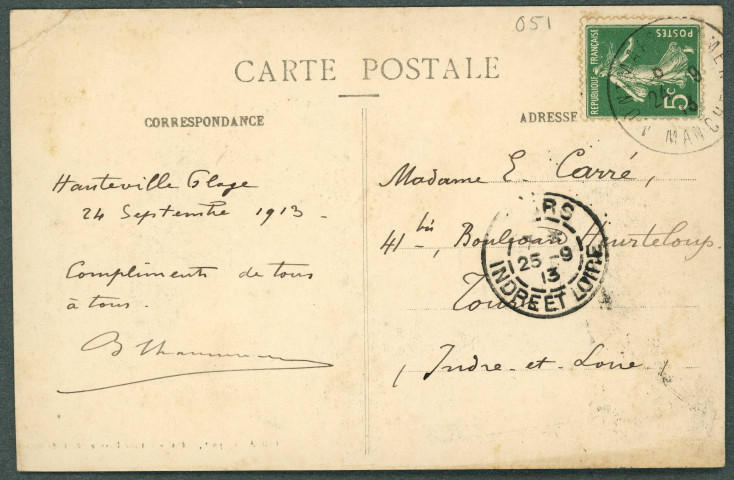 051
CARTE POSTALE
CORRESPONDANCE
ADRESSE
RÉPUBLIQUE FRANÇAISE
POSTES
5c
MANCHE
24 9
Hauteville Plage
24 Septembre 1913 -
Compliments de tous
à tous.
Madame E. Carré,
41 bis, Boulevard Heurteloup.
Tours
(Indre-et-Loire)
25 - 9
13
INDRE ET LOIRE